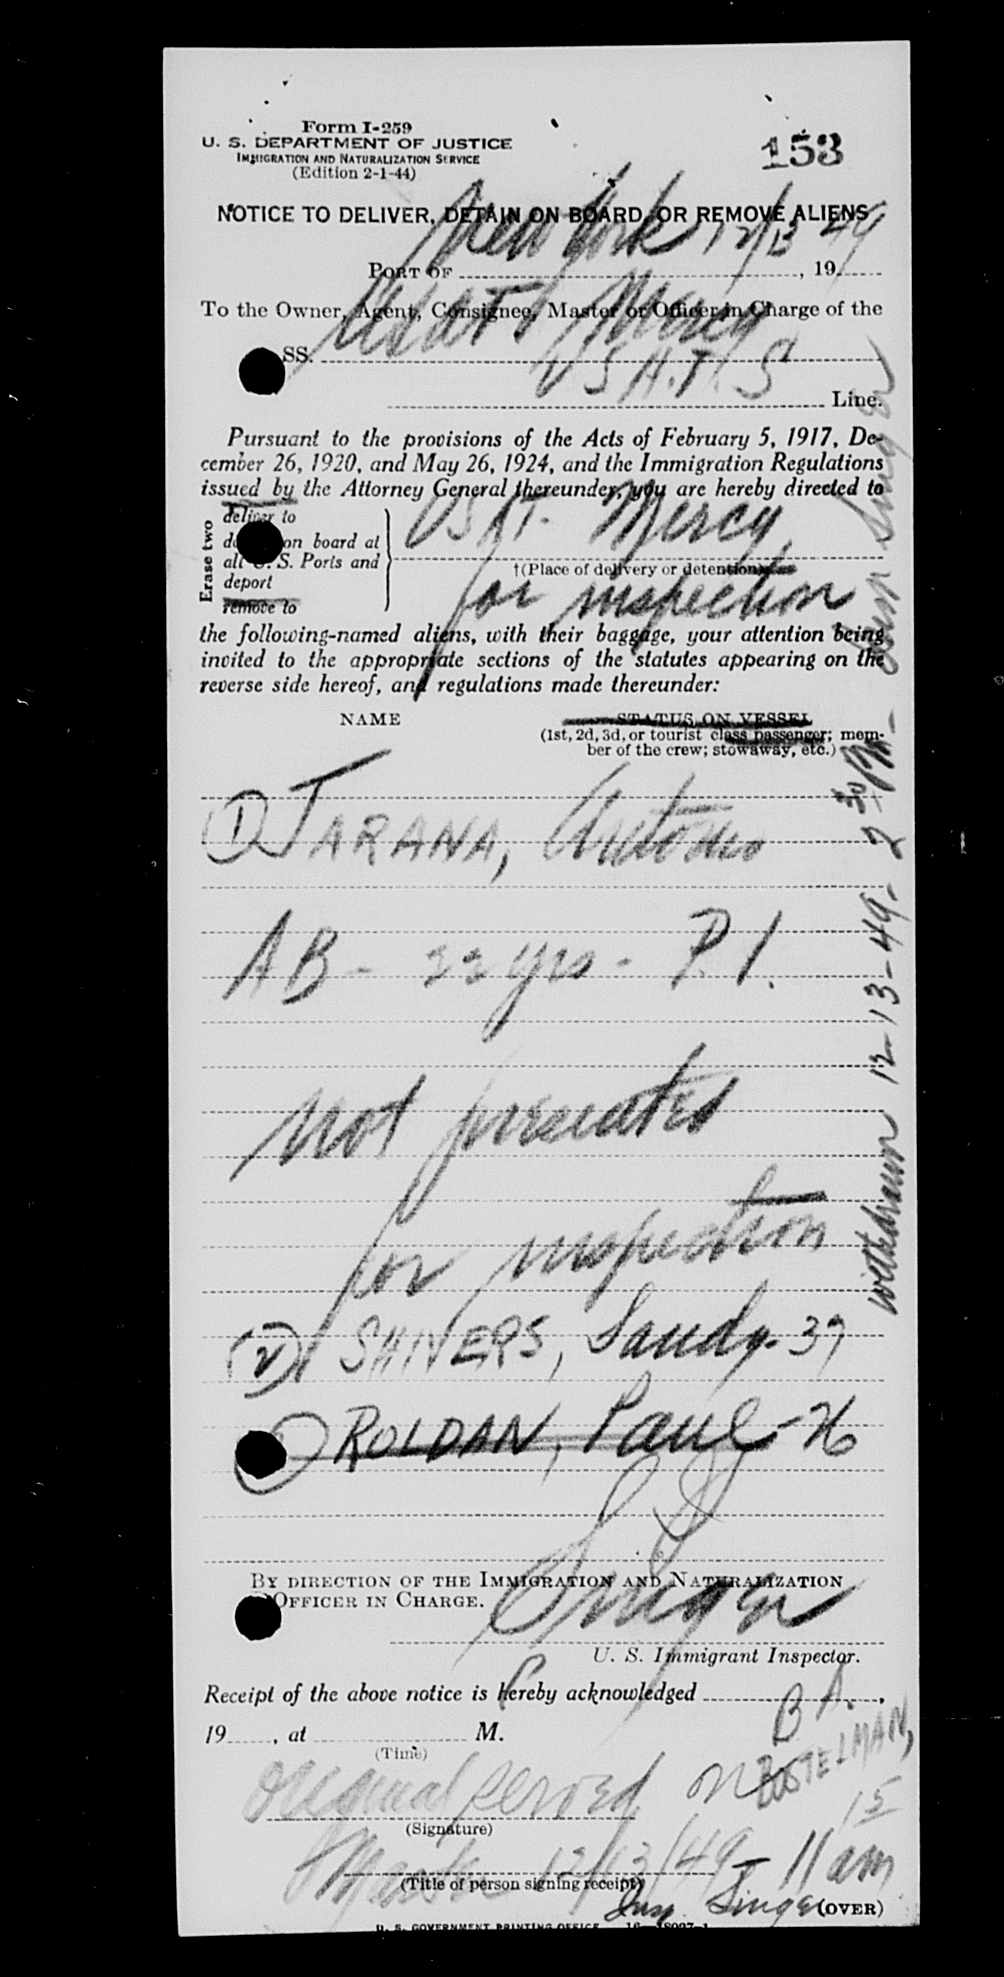 Form I-259
U. S. DEPARTMENT OF JUSTICE
IMMIGRATION AND NATURALIZATION SERVICE
(Edition 2-1-44)
153
NOTICE TO DELIVER, DETAIN ON BOARD, OR REMOVE ALIENS
PORT OF New York 12/13, 1949
To the Owner, Agent, Consignee, Master or Officer in Charge of the
SS. USAT Mercy
USA.T.S Line.
Pursuant to the provisions of the Acts of February 5, 1917, De-
cember 26, 1920, and May 26, 1924, and the Immigration Regulations
issued by the Attorney General thereunder, you are hereby directed to
Erase two
deliver to
on board at
all U. S. Ports and
deport
remove to
USAT. Mercy
†(Place of delivery or detention)
for inspection
the following-named aliens, with their baggage, your attention being
invited to the appropriate sections of the statutes appearing on the
reverse side hereof, and regulations made thereunder:
NAME
STATUS ON VESSEL
(1st, 2d, 3d, or tourist class passenger; mem-
ber of the crew; stowaway, etc.)
(1) JARANA, Antonio
AB - 22 yrs - P.I.
Not presented
for inspection
(2) SHIVERS, Sandy - 37
ROLDAN, Paul - 26
BY DIRECTION OF THE IMMIGRATION AND NATURALIZATION
OFFICER IN CHARGE.
Singer
U. S. Immigrant Inspector.
Receipt of the above notice is hereby acknowledged
19 , at M.
(Time)
B A.
BOSTELMAN,
original served on
(Signature)
15
Master 12/13/49 - 11 am
(Title of person signing receipt)
Insp. Singer
(OVER)
U. S. GOVERNMENT PRINTING OFFICE
withdrawn 12-13-49- 2 30 PM - Insp Singer